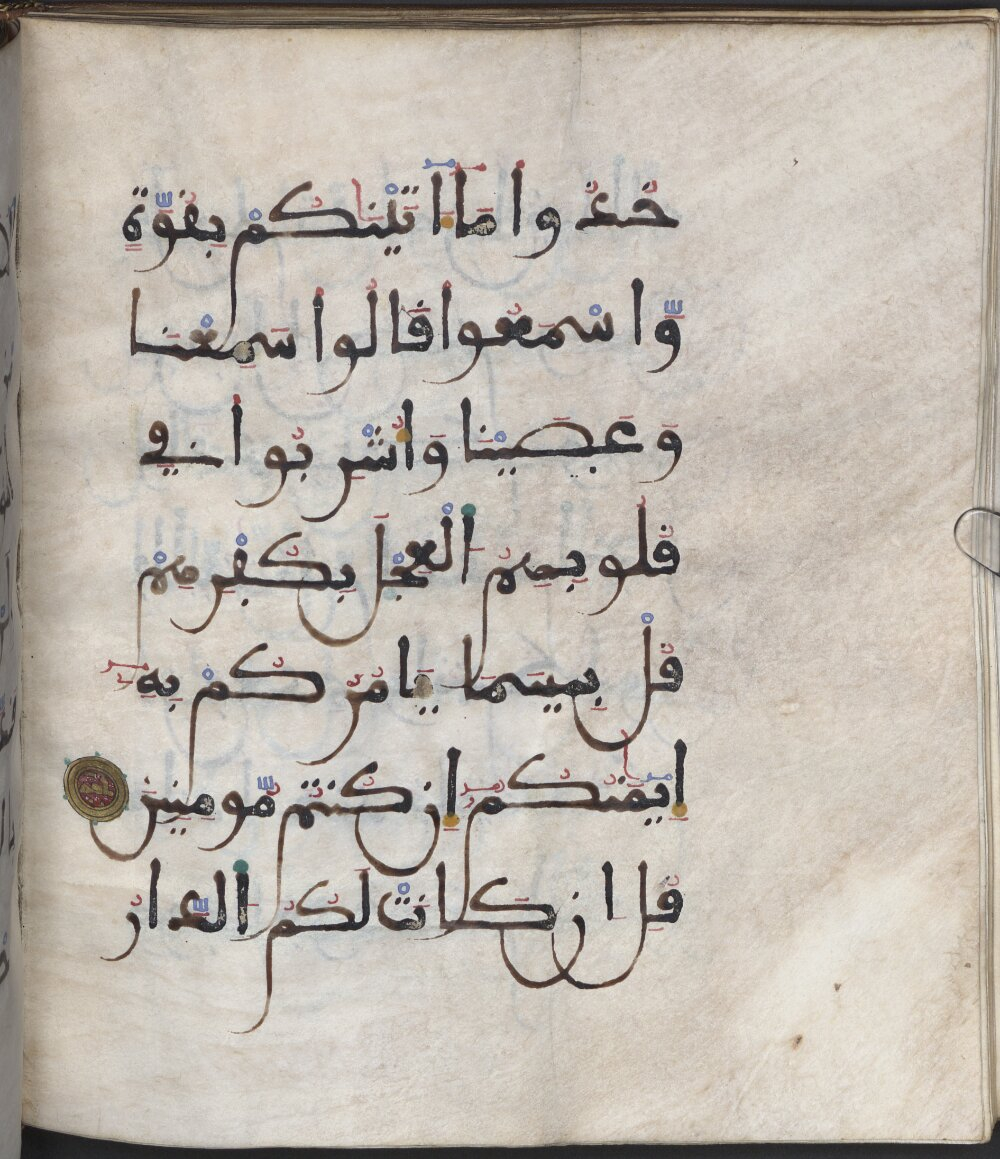 خُذُواْ مَآ ءَاتَيْنَٰكُم بِقُوَّةٖ
وَّاسْمَعُواْ قَالُواْ سَمِعْنَا
وَعَصَيْنَا وَأُشْرِبُواْ فِي
قُلُوبِهِمُ الْعِجْلَ بِكُفْرِهِمْ
قُلْ بِيسَمَا يَامُرُكُمْ بِهِۦٓ
إِيمَٰنُكُمُۥٓ إِن كُنتُم مُّومِنِينَ
قُلِ ان كَانَتْ لَكُمُ الدَّارُ